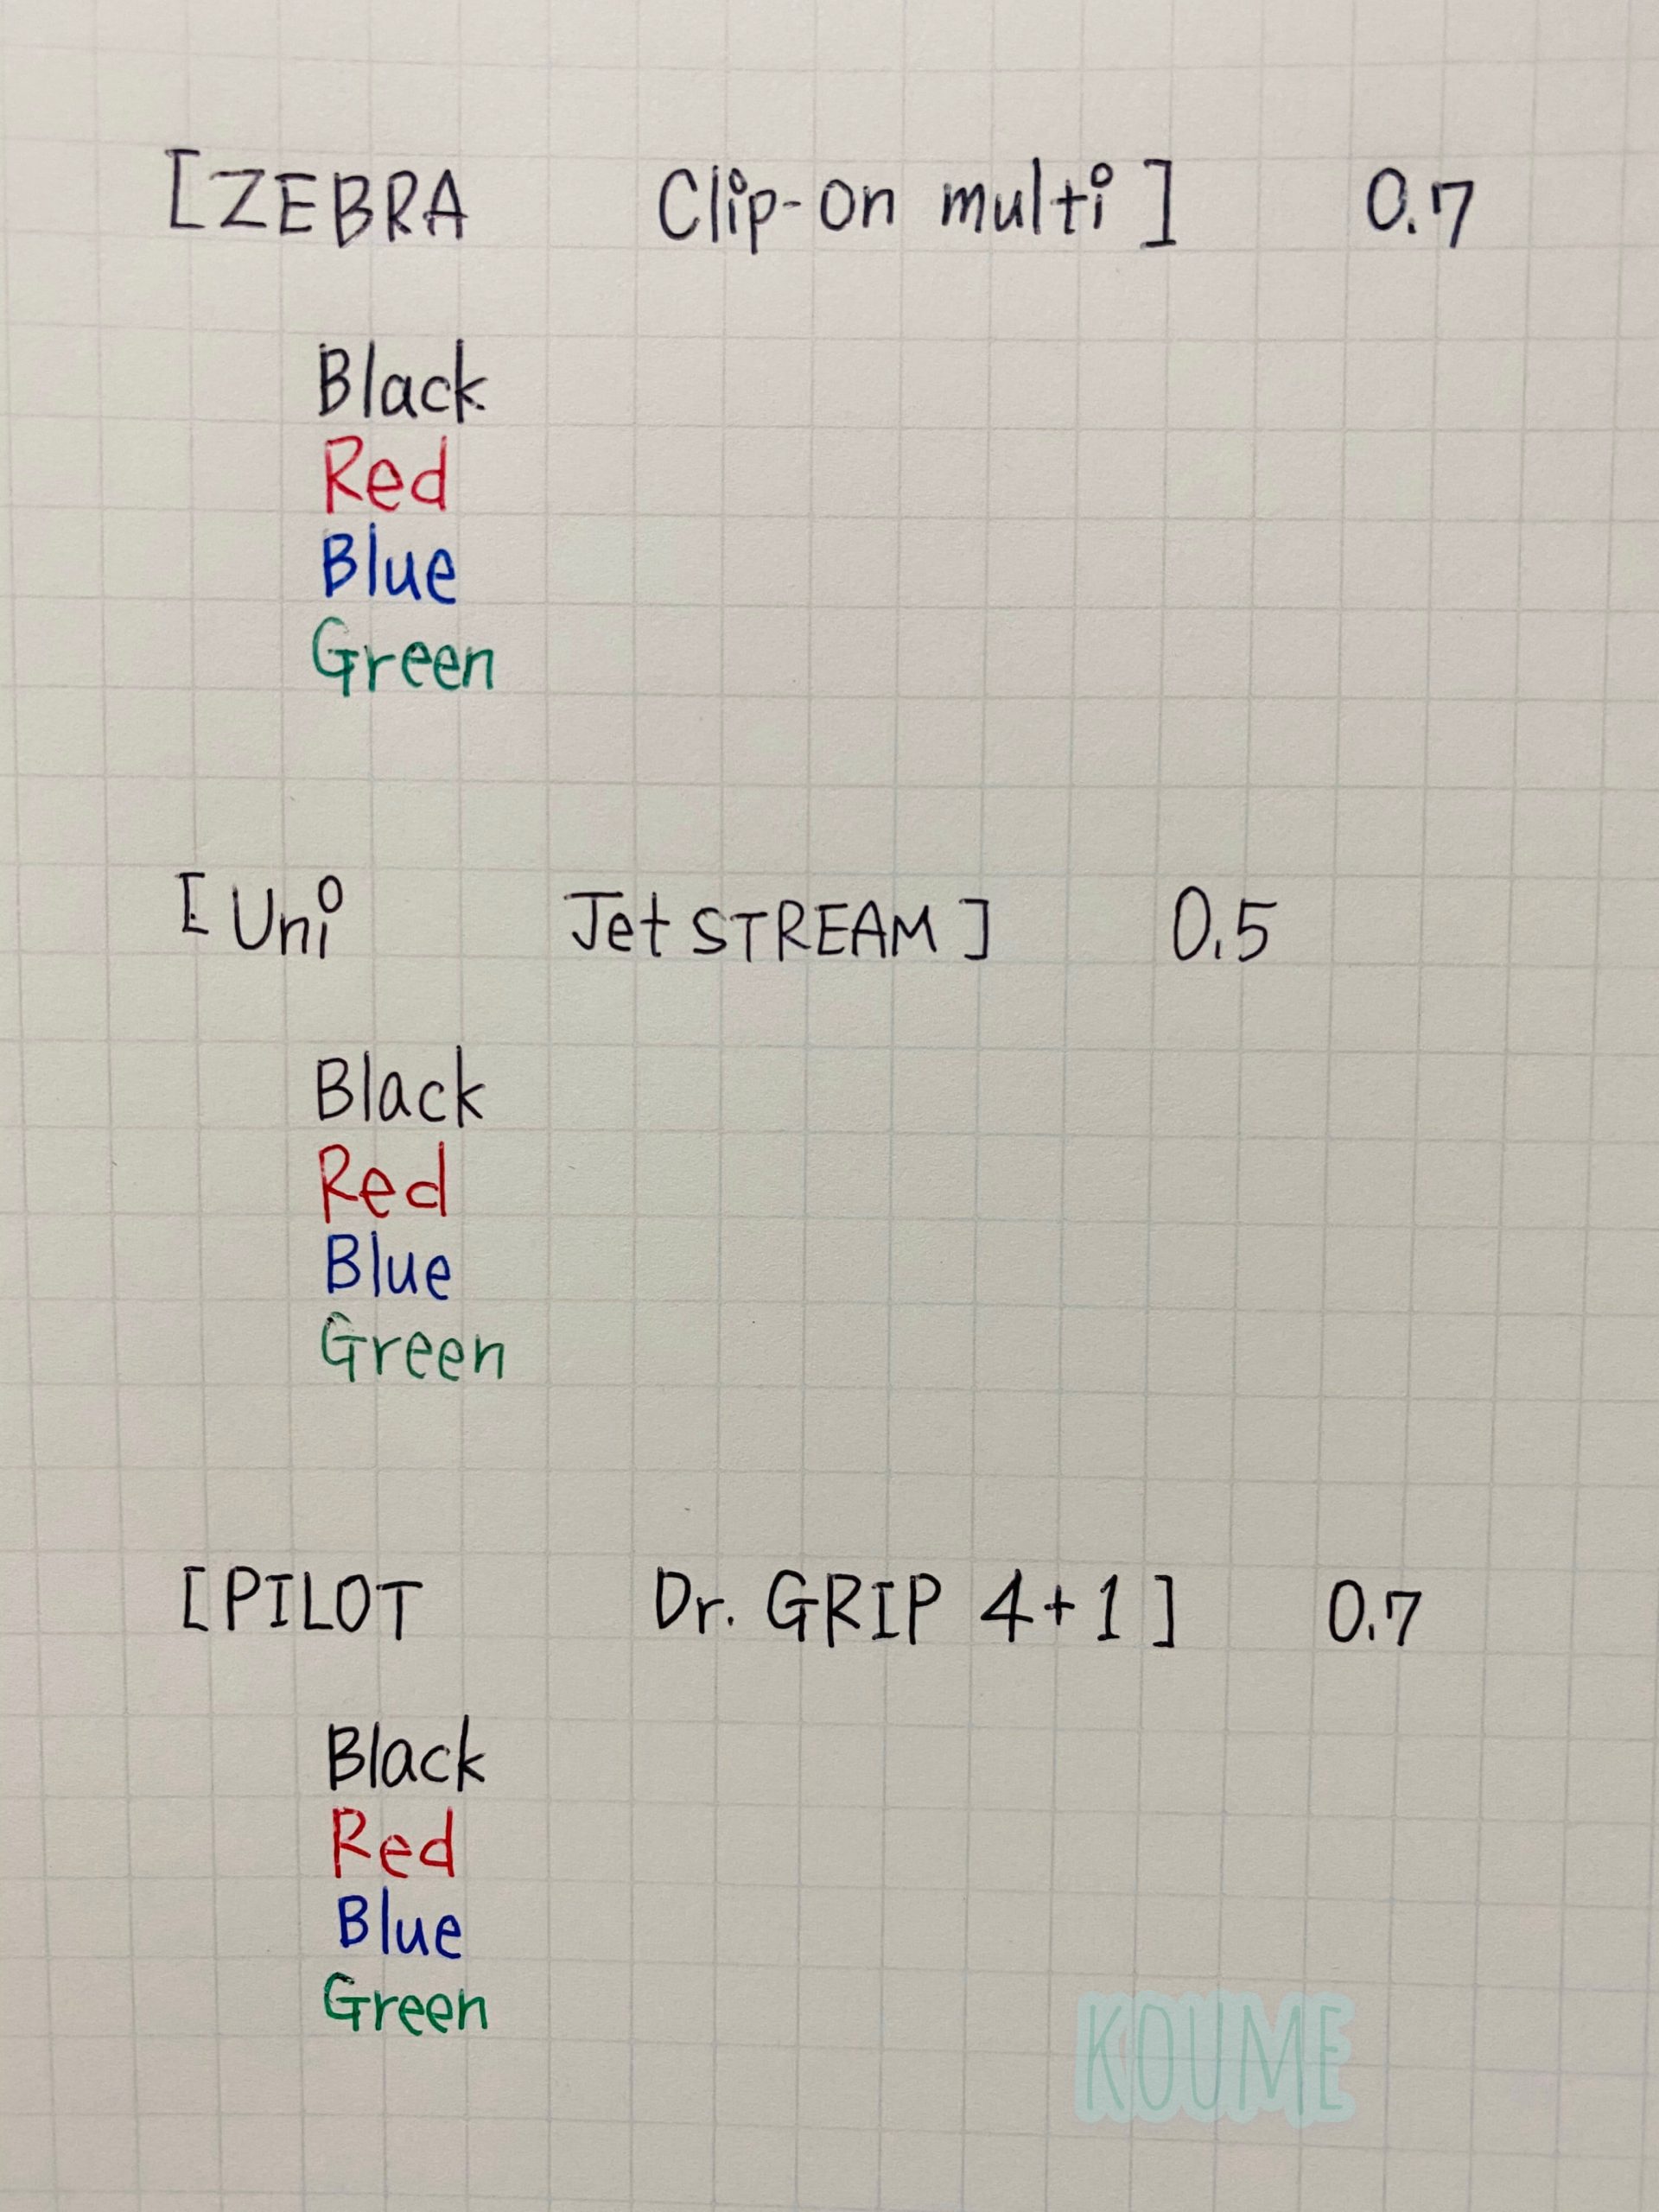 [ZEBRA Clip-on multi] 0.7
Black
Red
Blue
Green
[Uni Jet STREAM] 0.5
Black
Red
Blue
Green
[PILOT Dr. GRIP 4+1] 0.7
Black
Red
Blue
Green
KOUME